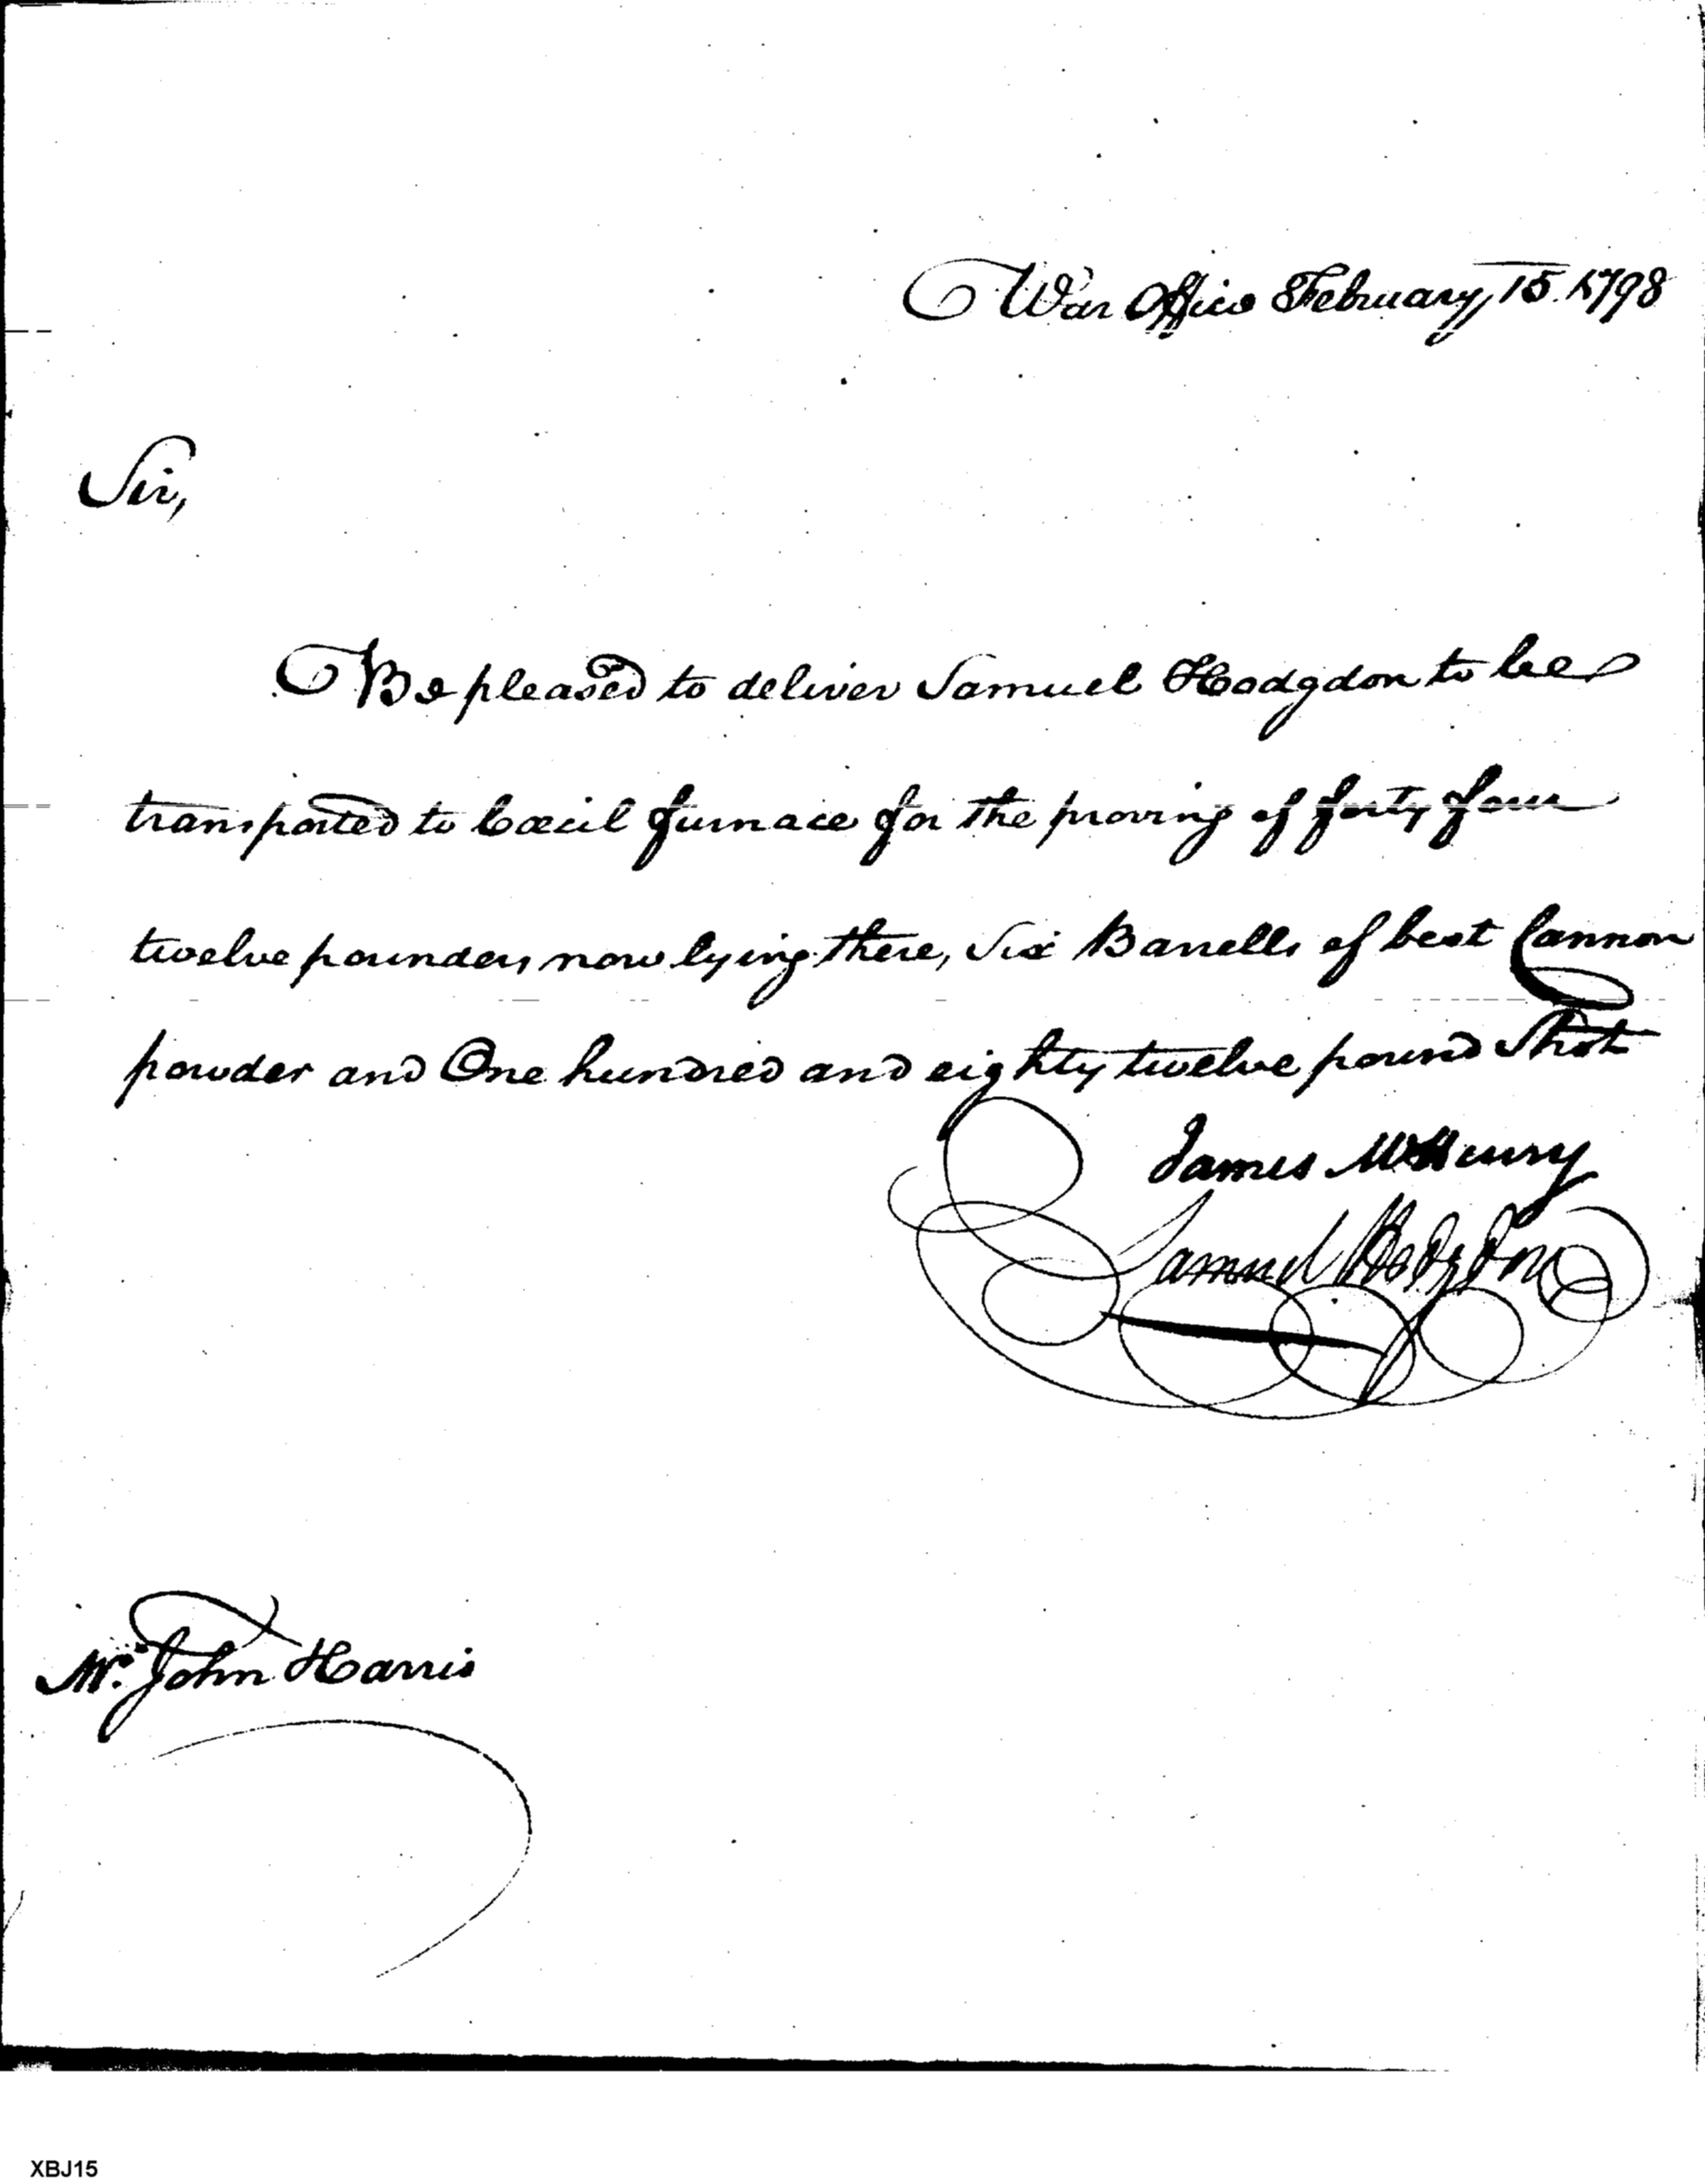 War Office February 15. 1798
Sir,
Be pleased to deliver Samuel Hodgdon to be
transported to Cœcil furnace for the proving of forty four
twelve pounders now lying there, Six Barrells of best Cannon
powder and One hundred and eighty twelve pound Shot
James McHenry
Samuel Hodgdon
Mr. John Harris
XBJ15